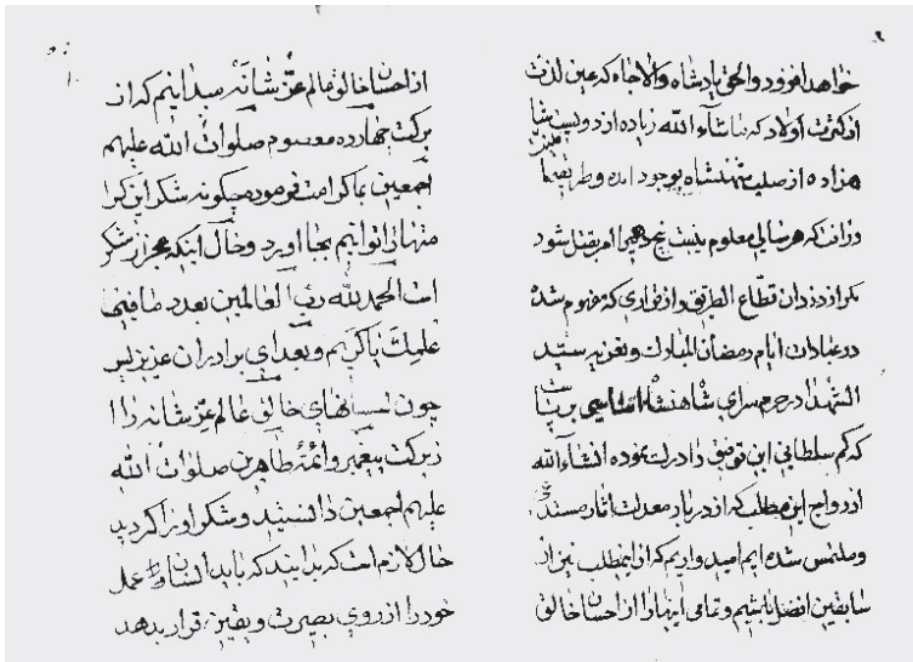 خواهد افزود والحق پادشاه والاجاه که عین لذت
از کثرت اولاد که ماشآء الله زیاده از دویست
هزاده از صلب شهنشاه بوجود آمده و طریقها
وزانت که هر سالی معلوم نیست پنج امر بقتل شود
مکر از دزدان قطّاع الطریق و از قراری که مفهوم شده
در عبادات ایام رمضان المبارک و تعزیه سیّد
الشهدا در حرم سرای شاهنشاه اساسی برپاست
که کم سلطانی این توفیق را درک نموده انشاءالله
از رواج این مطلب که از دربار معدلت اثار مستدعی
و ملتمس شده ایم امید واریم که از اینمطلب نیز از
سابقین افضل باشیم و تمامی اینها را از احسان خالق
از احسان خالق عالم عزّ شانه میدانیم که از
برکت چهارده معصوم صلوات الله علیهم
اجمعین بما کرامت فرموده چکونه شکر این کرا
متها را توانیم بجا اورد و حال اینکه عجز از شکر
است الحمد لله ربّ العالمین بعدد ما فیها
علمک یا کریم و بعد ای برادران عزیز پس
چون احسانهای خالق عالم عزّ شانه را
از برکت پیغمبر و ائمّه طاهرین صلوات الله
علیهم اجمعین دانستید و شکر او را کردید
حال لازم است که بدانید که باید انسان عمل
خود را از روی بصیرت و یقین قرار بدهد